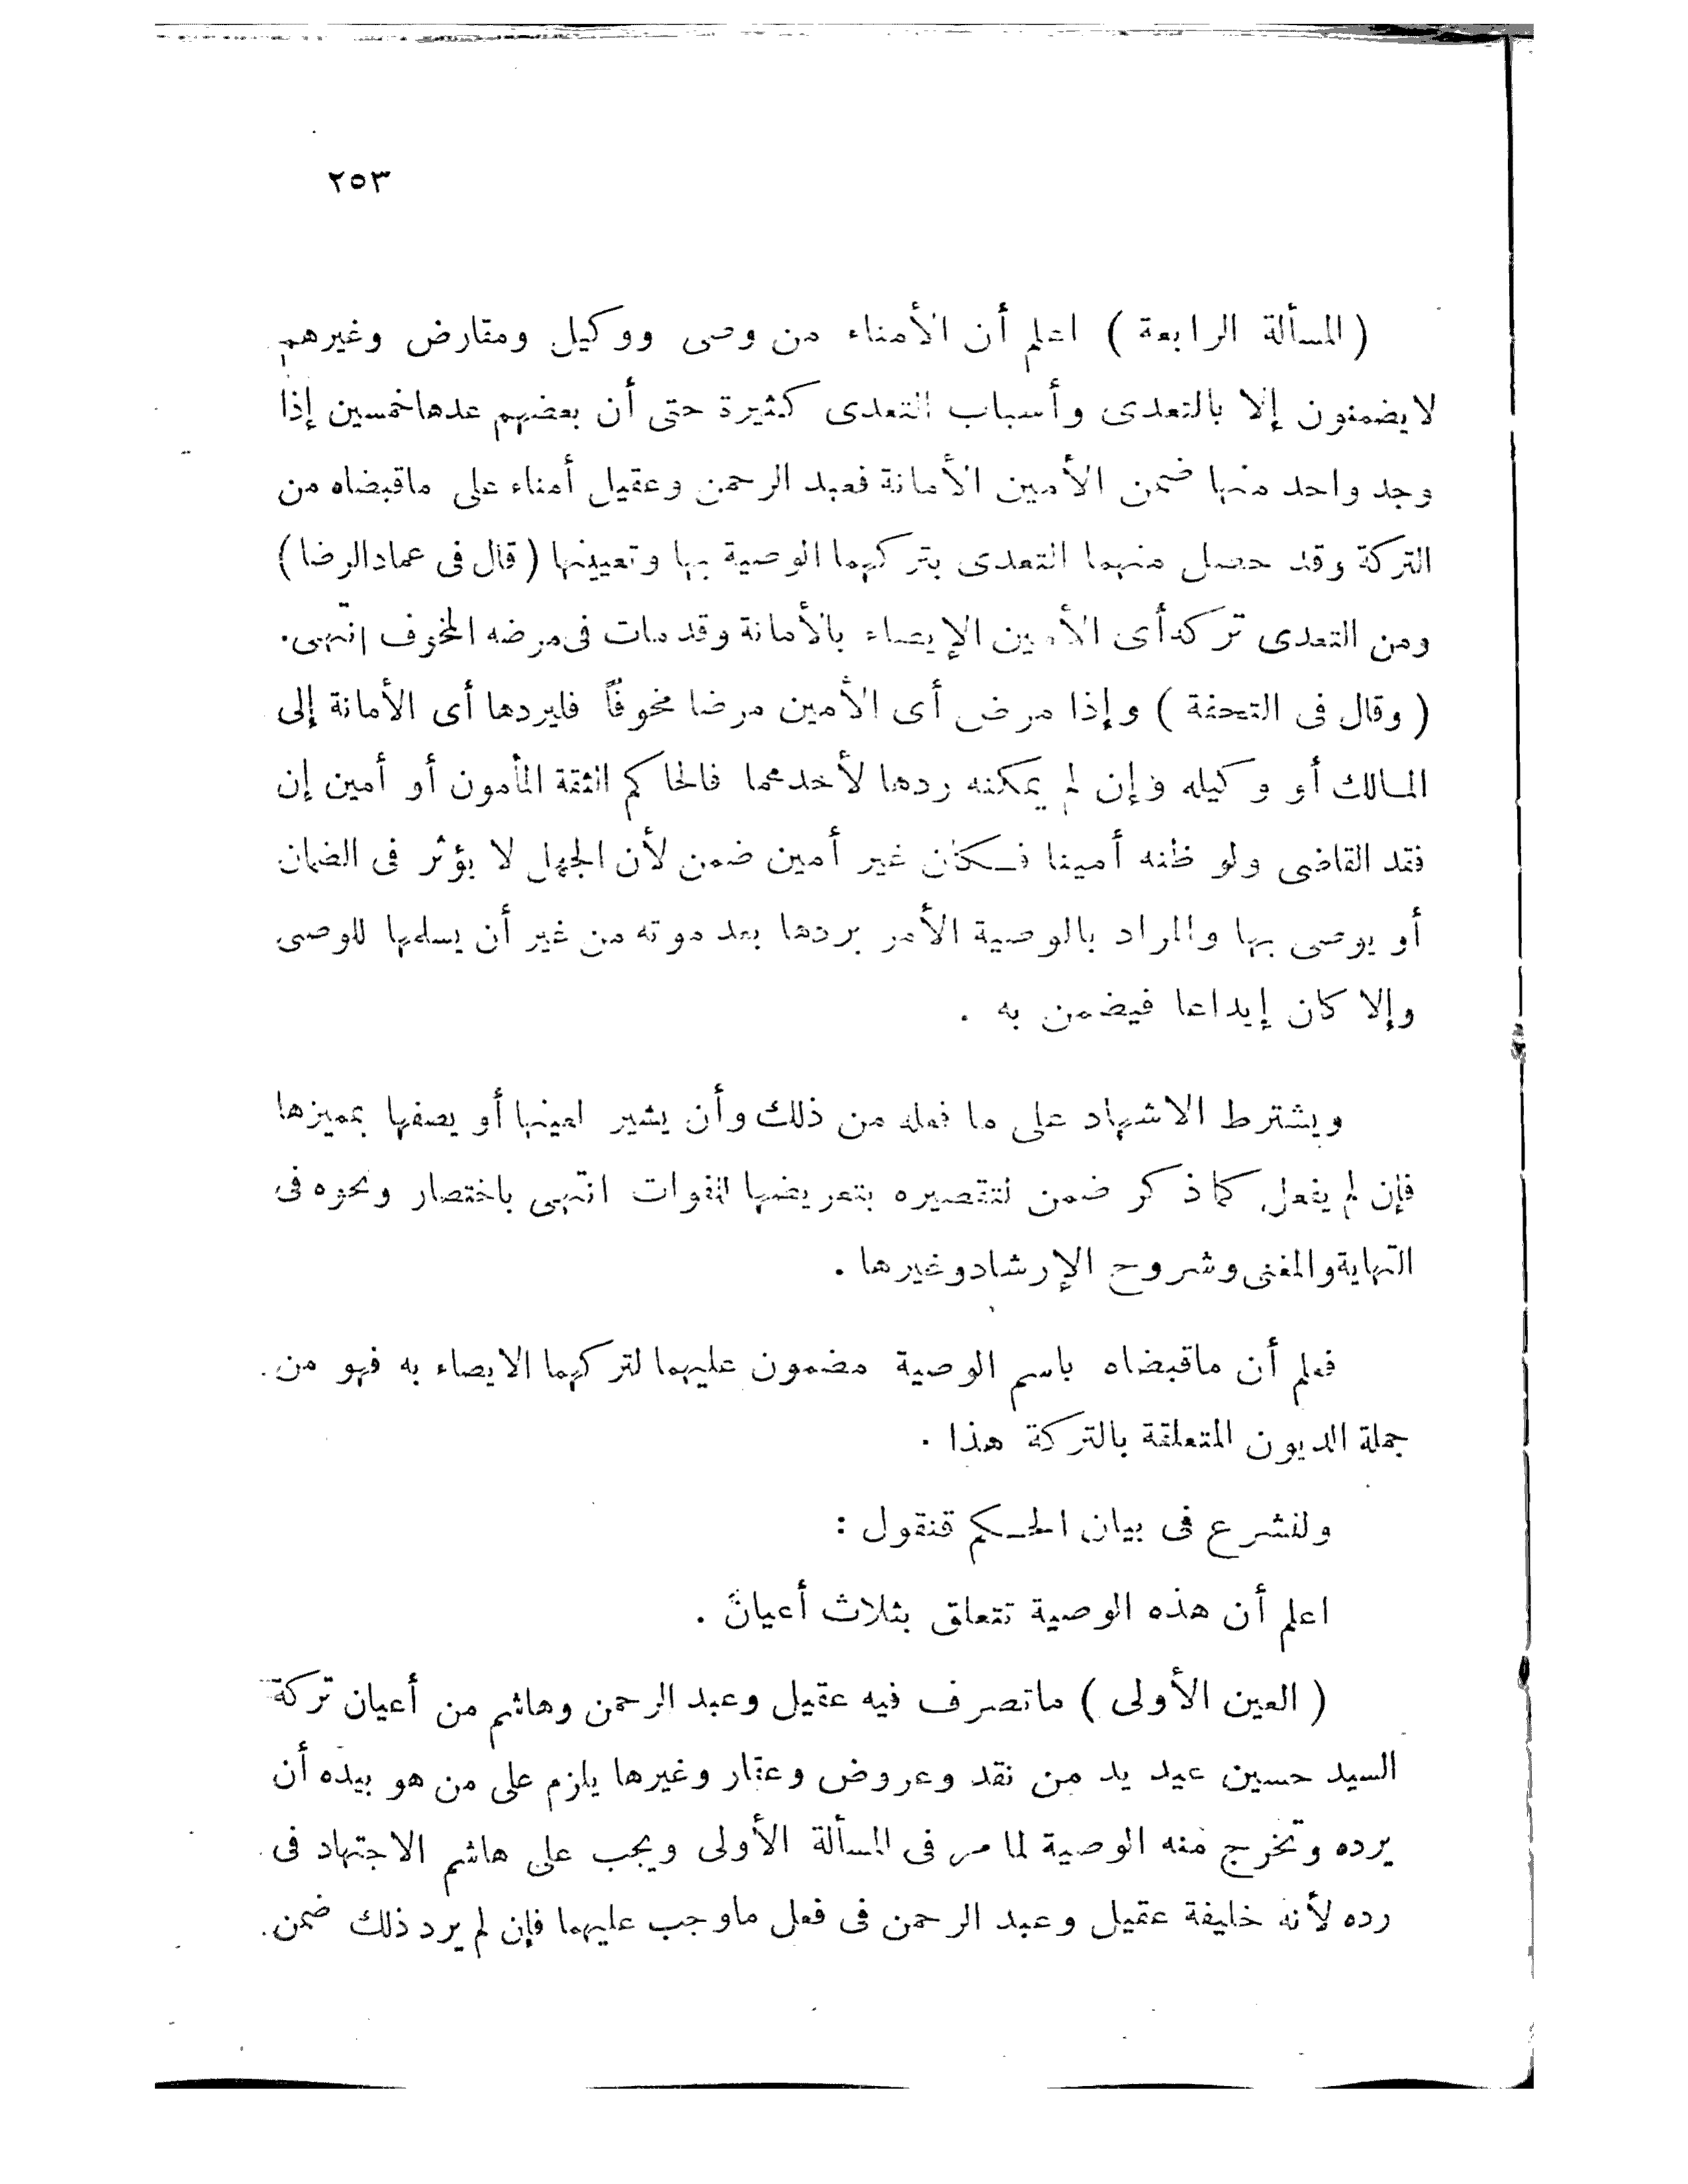 ٢٥٣
( المسألة الرابعة ) اعلم أن الأمناء من وصى ووكيل ومقارض وغيرهم
لايضمنون إلا بالتعدى وأسباب التعدى كثيرة حتى أن بعضهم عدها خمسين إذا
وجد واحد منها ضمن الأمين الأمانة فعبد الرحمن وعقيل أمناء على ماقبضاه من
التركة وقد حصل منهما التعدى بتركهما الوصية بها وتعيينها ( قال فى عماد الرضا )
ومن التعدى تركه أى الأمين الإيصاء بالأمانة وقد مات فى مرضه المخوف انتهى.
( وقال فى التحفة ) وإذا مرض أى الأمين مرضا مخوفاً فليردها أى الأمانة إلى
المالك أو وكيله وإن لم يمكنه ردها لأحدهما فالحاكم الثقة المأمون أو أمين إن
فقد القاضى ولو ظنه أمينا فكان غير أمين ضمن لأن الجهل لا يؤثر فى الضمان
أو يوصى بها والمراد بالوصية الأمر بردها بعد موته من غير أن يسلمها للوصى
وإلا كان إيداعا فيضمن به .
ويشترط الاشهاد على ما فعله من ذلك وأن يشير لعينها أو يصفها بمميزها
فإن لم يفعل كما ذكر ضمن لتقصيره بتعريضها للفوات انتهى باختصار ونحوه فى
النهاية والمغنى وشروح الإرشاد وغيرها .
فعلم أن ماقبضاه باسم الوصية مضمون عليهما لتركهما الايصاء به فهو من
جملة الديون المتعلقة بالتركة هذا .
ولنشرع فى بيان الحكم قنقول :
اعلم أن هذه الوصية تتعلق بثلاث أعيان .
( العين الأولى ) ماتصرف فيه عقيل وعبد الرحمن وهاشم من أعيان تركة
السيد حسين عيديد من نقد وعروض وعقار وغيرها يلزم على من هو بيده أن
يرده وتخرج منه الوصية لما مر فى المسألة الأولى ويجب على هاشم الاجتهاد فى
رده لأنه خليفة عقيل وعبد الرحمن فى فعل ماوجب عليهما فإن لم يرد ذلك ضمن